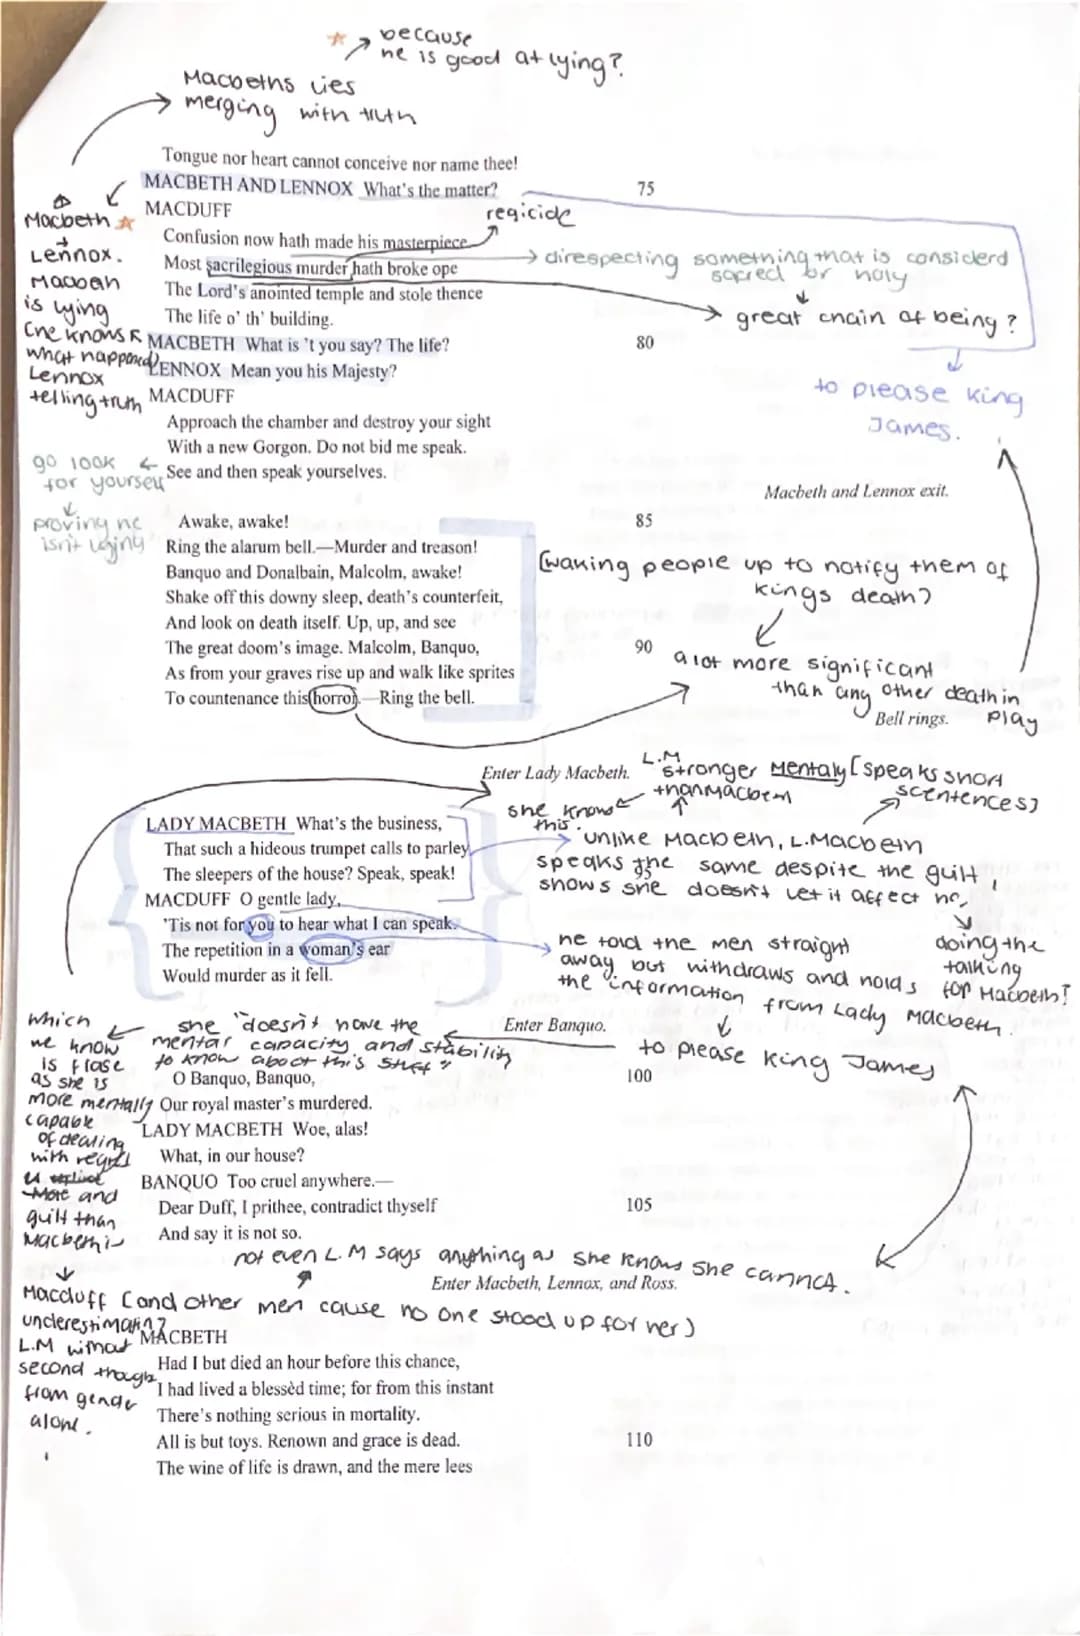 ☆ → because
he is good at lying?
Macbeths lies
merging with truth
Tongue nor heart cannot conceive nor name thee!
MACBETH AND LENNOX What's the matter? 75
MACDUFF
regicide
Confusion now hath made his masterpiece.
Most sacrilegious murder hath broke ope
The Lord's anointed temple and stole thence
The life o' th' building.
MACBETH What is 't you say? The life? 80
LENNOX Mean you his Majesty?
MACDUFF
Approach the chamber and destroy your sight
With a new Gorgon. Do not bid me speak.
See and then speak yourselves.
Macbeth ☆
+
Lennox.
is lying
(he knows
what happened)
Lennox
telling truth
direspecting something that is considerd
sacred or holy
great chain of being?
to please King
James.
go look
for yourself
proving he
isn't lying
Macbeth and Lennox exit.
Awake, awake! 85
Ring the alarum bell.—Murder and treason!
Banquo and Donalbain, Malcolm, awake!
Shake off this downy sleep, death's counterfeit,
And look on death itself. Up, up, and see
The great doom's image. Malcolm, Banquo, 90
As from your graves rise up and walk like sprites
To countenance this horror.—Ring the bell.
(waking people up to notify them of
kings death)
a lot more significant
than any other death in
play
Bell rings.
Enter Lady Macbeth.
L.M
stronger mentaly [speaks short
scentences]
than Macbeth
she knows
this.
LADY MACBETH What's the business,
That such a hideous trumpet calls to parley
The sleepers of the house? Speak, speak! 95
MACDUFF O gentle lady,
'Tis not for you to hear what I can speak.
The repetition in a woman's ear
Would murder as it fell.
unlike Macbeth, L.Macbeth
speaks the same despite the guilt,
shows she doesn't let it affect her
doing the
talking
for Macbeth?
he told the men straight
away but withdraws and holds
the information from Lady Macbeth.
to please King James
Enter Banquo.
she "doesn't have the
mentar capacity and stability
to know about this stuff"
which
we know
is flase
as she is
more mentally
capable
of dealing
with regret
more and
guilt than
Macbeth is
O Banquo, Banquo, 100
Our royal master's murdered.
LADY MACBETH Woe, alas!
What, in our house?
BANQUO Too cruel anywhere.—
Dear Duff, I prithee, contradict thyself 105
And say it is not so.
not even L.M says anything as she knows she cannot.
Enter Macbeth, Lennox, and Ross.
Macduff (and other men cause no one stood up for her)
underestimating
L.M without
second though
from gender
alone.
MACBETH
Had I but died an hour before this chance,
I had lived a blessèd time; for from this instant
There's nothing serious in mortality.
All is but toys. Renown and grace is dead. 110
The wine of life is drawn, and the mere lees